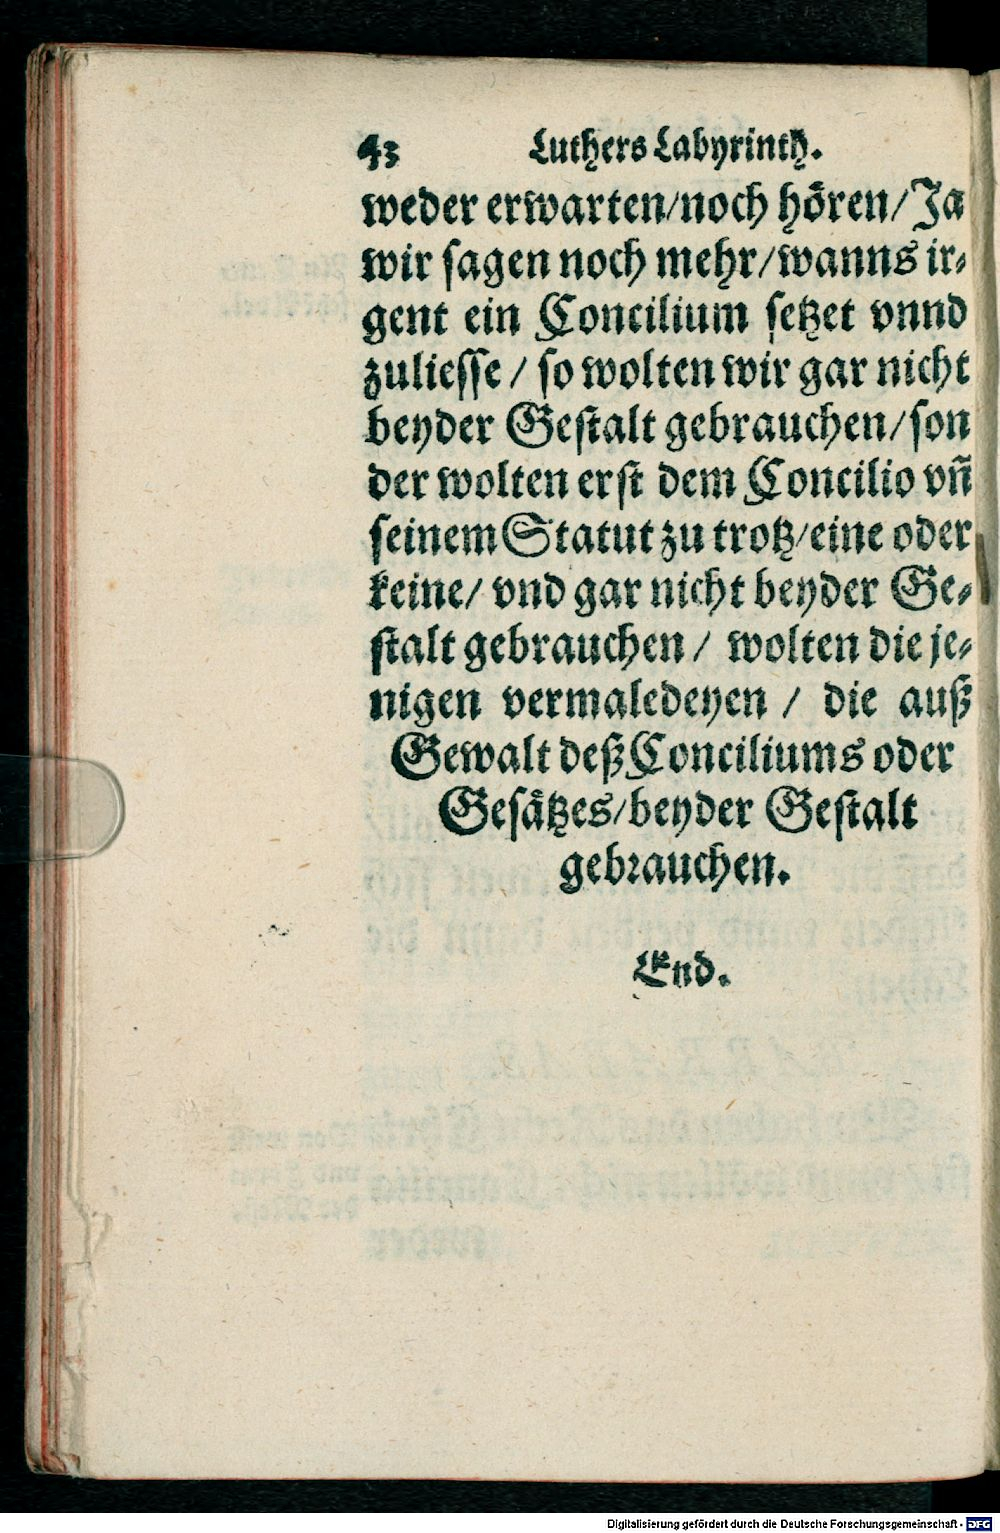 43 Luthers Labyrinth.
weder erwarten/noch hoͤren/Ja
wir sagen noch mehr/wanns ir⸗
gent ein Concilium setzet vnnd
zuliesse / so wolten wir gar nicht
beyder Gestalt gebrauchen/son
der wolten erst dem Concilio vñ
seinem Statut zu trotz/eine oder
keine/ vnd gar nicht beyder Ge⸗
stalt gebrauchen / wolten die je⸗
nigen vermaledeyen / die auß
Gewalt deß Conciliums oder
Gesaͤtzes/beyder Gestalt
gebrauchen.
End.
Digitalisierung gefördert durch die Deutsche Forschungsgemeinschaft - DFG